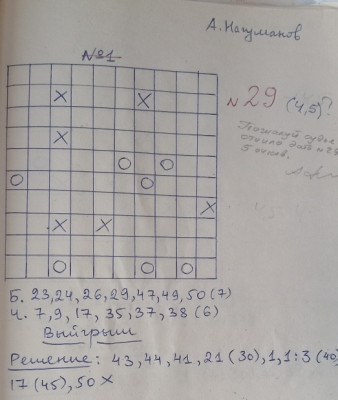 А. Нагуманов
№81
№ 29 (4,5)?
Б. 23,24,26,29,47,49,50 (7)
Ч. 7,9,17,35,37,38 (6)
Выигрыш
Решение: 43,44,41,21(30),1,1:3(40)
17(45),50 X